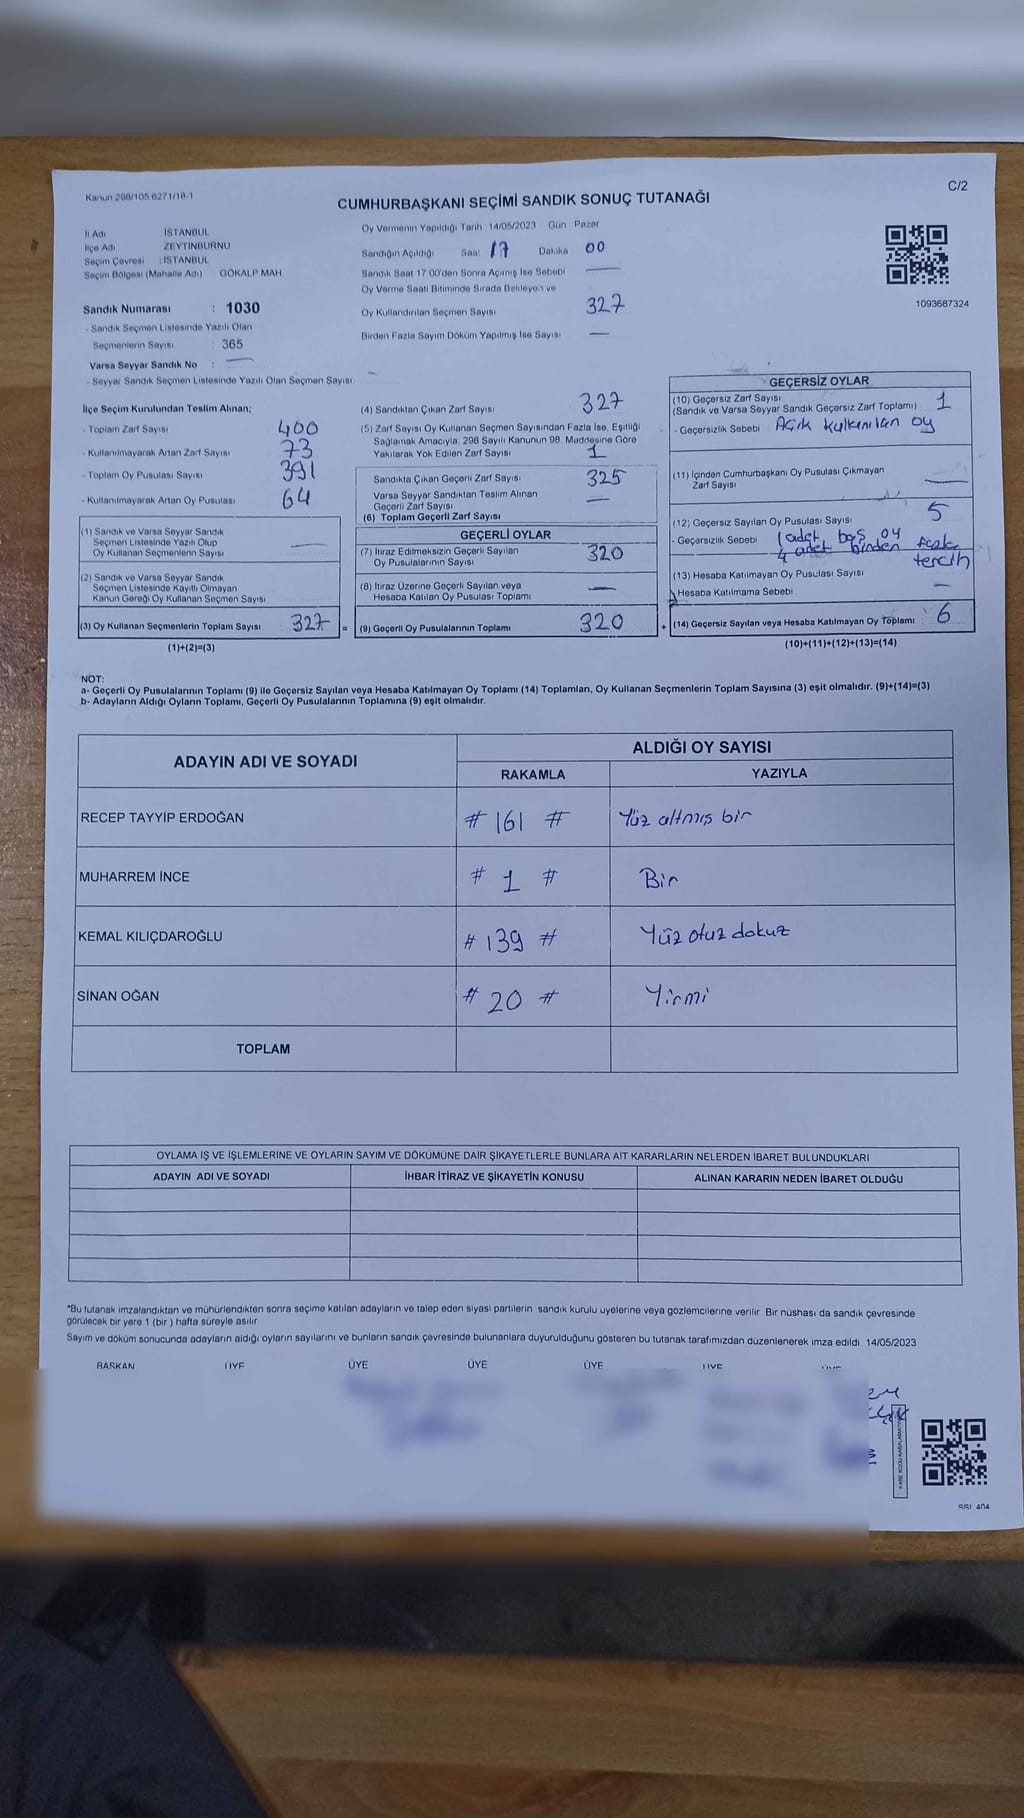 Kanun 298/105.6271/18-1
C/2
CUMHURBAŞKANI SEÇİMİ SANDIK SONUÇ TUTANAĞI
İl Adı İSTANBUL
İlçe Adı ZEYTİNBURNU
Seçim Çevresi : İSTANBUL
Seçim Bölgesi (Mahalle Adı) GÖKALP MAH
Sandık Numarası : 1030
- Sandık Seçmen Listesinde Yazılı Olan
Seçmenlerin Sayısı : 365
Varsa Seyyar Sandık No :
- Seyyar Sandık Seçmen Listesinde Yazılı Olan Seçmen Sayısı
Oy Vermenin Yapıldığı Tarih : 14/05/2023 Gün Pazar
Sandığın Açıldığı Saat 17 Dakika 00
Sandık Saat 17.00'den Sonra Açılmış İse Sebebi
Oy Verme Saati Bitiminde Sırada Bekleyen ve
Oy Kullandırılan Seçmen Sayısı 327
Birden Fazla Sayım Döküm Yapılmış İse Sayısı
1093687324
İlçe Seçim Kurulundan Teslim Alınan;
- Toplam Zarf Sayısı 400
- Kullanılmayarak Artan Zarf Sayısı 73
- Toplam Oy Pusulası Sayısı 391
- Kullanılmayarak Artan Oy Pusulası 64
(1) Sandık ve Varsa Seyyar Sandık
Seçmen Listesinde Yazılı Olup
Oy Kullanan Seçmenlerin Sayısı
(2) Sandık ve Varsa Seyyar Sandık
Seçmen Listesinde Kayıtlı Olmayan
Kanun Gereği Oy Kullanan Seçmen Sayısı
(3) Oy Kullanan Seçmenlerin Toplam Sayısı 327 =
(1)+(2)=(3)
(4) Sandıktan Çıkan Zarf Sayısı 327
(5) Zarf Sayısı Oy Kullanan Seçmen Sayısından Fazla İse, Eşitliği
Sağlamak Amacıyla, 298 Sayılı Kanunun 98. Maddesine Göre
Yakılarak Yok Edilen Zarf Sayısı 1
Sandıkta Çıkan Geçerli Zarf Sayısı 325
Varsa Seyyar Sandıktan Teslim Alınan
Geçerli Zarf Sayısı
(6) Toplam Geçerli Zarf Sayısı
GEÇERLİ OYLAR
(7) İtiraz Edilmeksizin Geçerli Sayılan
Oy Pusulalarının Sayısı 320
(8) İtiraz Üzerine Geçerli Sayılan veya
Hesaba Katılan Oy Pusulası Toplamı
(9) Geçerli Oy Pusulalarının Toplamı 320 +
GEÇERSİZ OYLAR
(10) Geçersiz Zarf Sayısı
(Sandık ve Varsa Seyyar Sandık Geçersiz Zarf Toplamı) 1
- Geçersizlik Sebebi Açık kulkanılan oy
(11) İçinden Cumhurbaşkanı Oy Pusulası Çıkmayan
Zarf Sayısı
(12) Geçersiz Sayılan Oy Pusulası Sayısı 5
- Geçersizlik Sebebi 1 adet boş oy
4 adet birden fazla
tercih
(13) Hesaba Katılmayan Oy Pusulası Sayısı
Hesaba Katılmama Sebebi
(14) Geçersiz Sayılan veya Hesaba Katılmayan Oy Toplamı 6
(10)+(11)+(12)+(13)=(14)
NOT:
a- Geçerli Oy Pusulalarının Toplamı (9) ile Geçersiz Sayılan veya Hesaba Katılmayan Oy Toplamı (14) Toplamları, Oy Kullanan Seçmenlerin Toplam Sayısına (3) eşit olmalıdır. (9)+(14)=(3)
b- Adayların Aldığı Oyların Toplamı, Geçerli Oy Pusulalarının Toplamına (9) eşit olmalıdır.
ADAYIN ADI VE SOYADI
ALDIĞI OY SAYISI
RAKAMLA YAZIYLA
RECEP TAYYİP ERDOĞAN # 161 # Yüz altmış bir
MUHARREM İNCE # 1 # Bir
KEMAL KILIÇDAROĞLU # 139 # Yüz otuz dokuz
SİNAN OĞAN # 20 # Yirmi
TOPLAM
OYLAMA İŞ VE İŞLEMLERİNE VE OYLARIN SAYIM VE DÖKÜMÜNE DAİR ŞİKAYETLERLE BUNLARA AİT KARARLARIN NELERDEN İBARET BULUNDUKLARI
ADAYIN ADI VE SOYADI İHBAR İTİRAZ VE ŞİKAYETİN KONUSU ALINAN KARARIN NEDEN İBARET OLDUĞU
*Bu tutanak imzalandıktan ve mühürlendikten sonra seçime katılan adayların ve talep eden siyasi partilerin sandık kurulu üyelerine veya gözlemcilerine verilir. Bir nüshası da sandık çevresinde
görülecek bir yere 1 (bir ) hafta süreyle asılır.
Sayım ve döküm sonucunda adayların aldığı oyların sayılarını ve bunların sandık çevresinde bulunanlara duyurulduğunu gösteren bu tutanak tarafımızdan düzenlenerek imza edildi. 14/05/2023
BAŞKAN ÜYE ÜYE ÜYE ÜYE ÜYE ÜYE